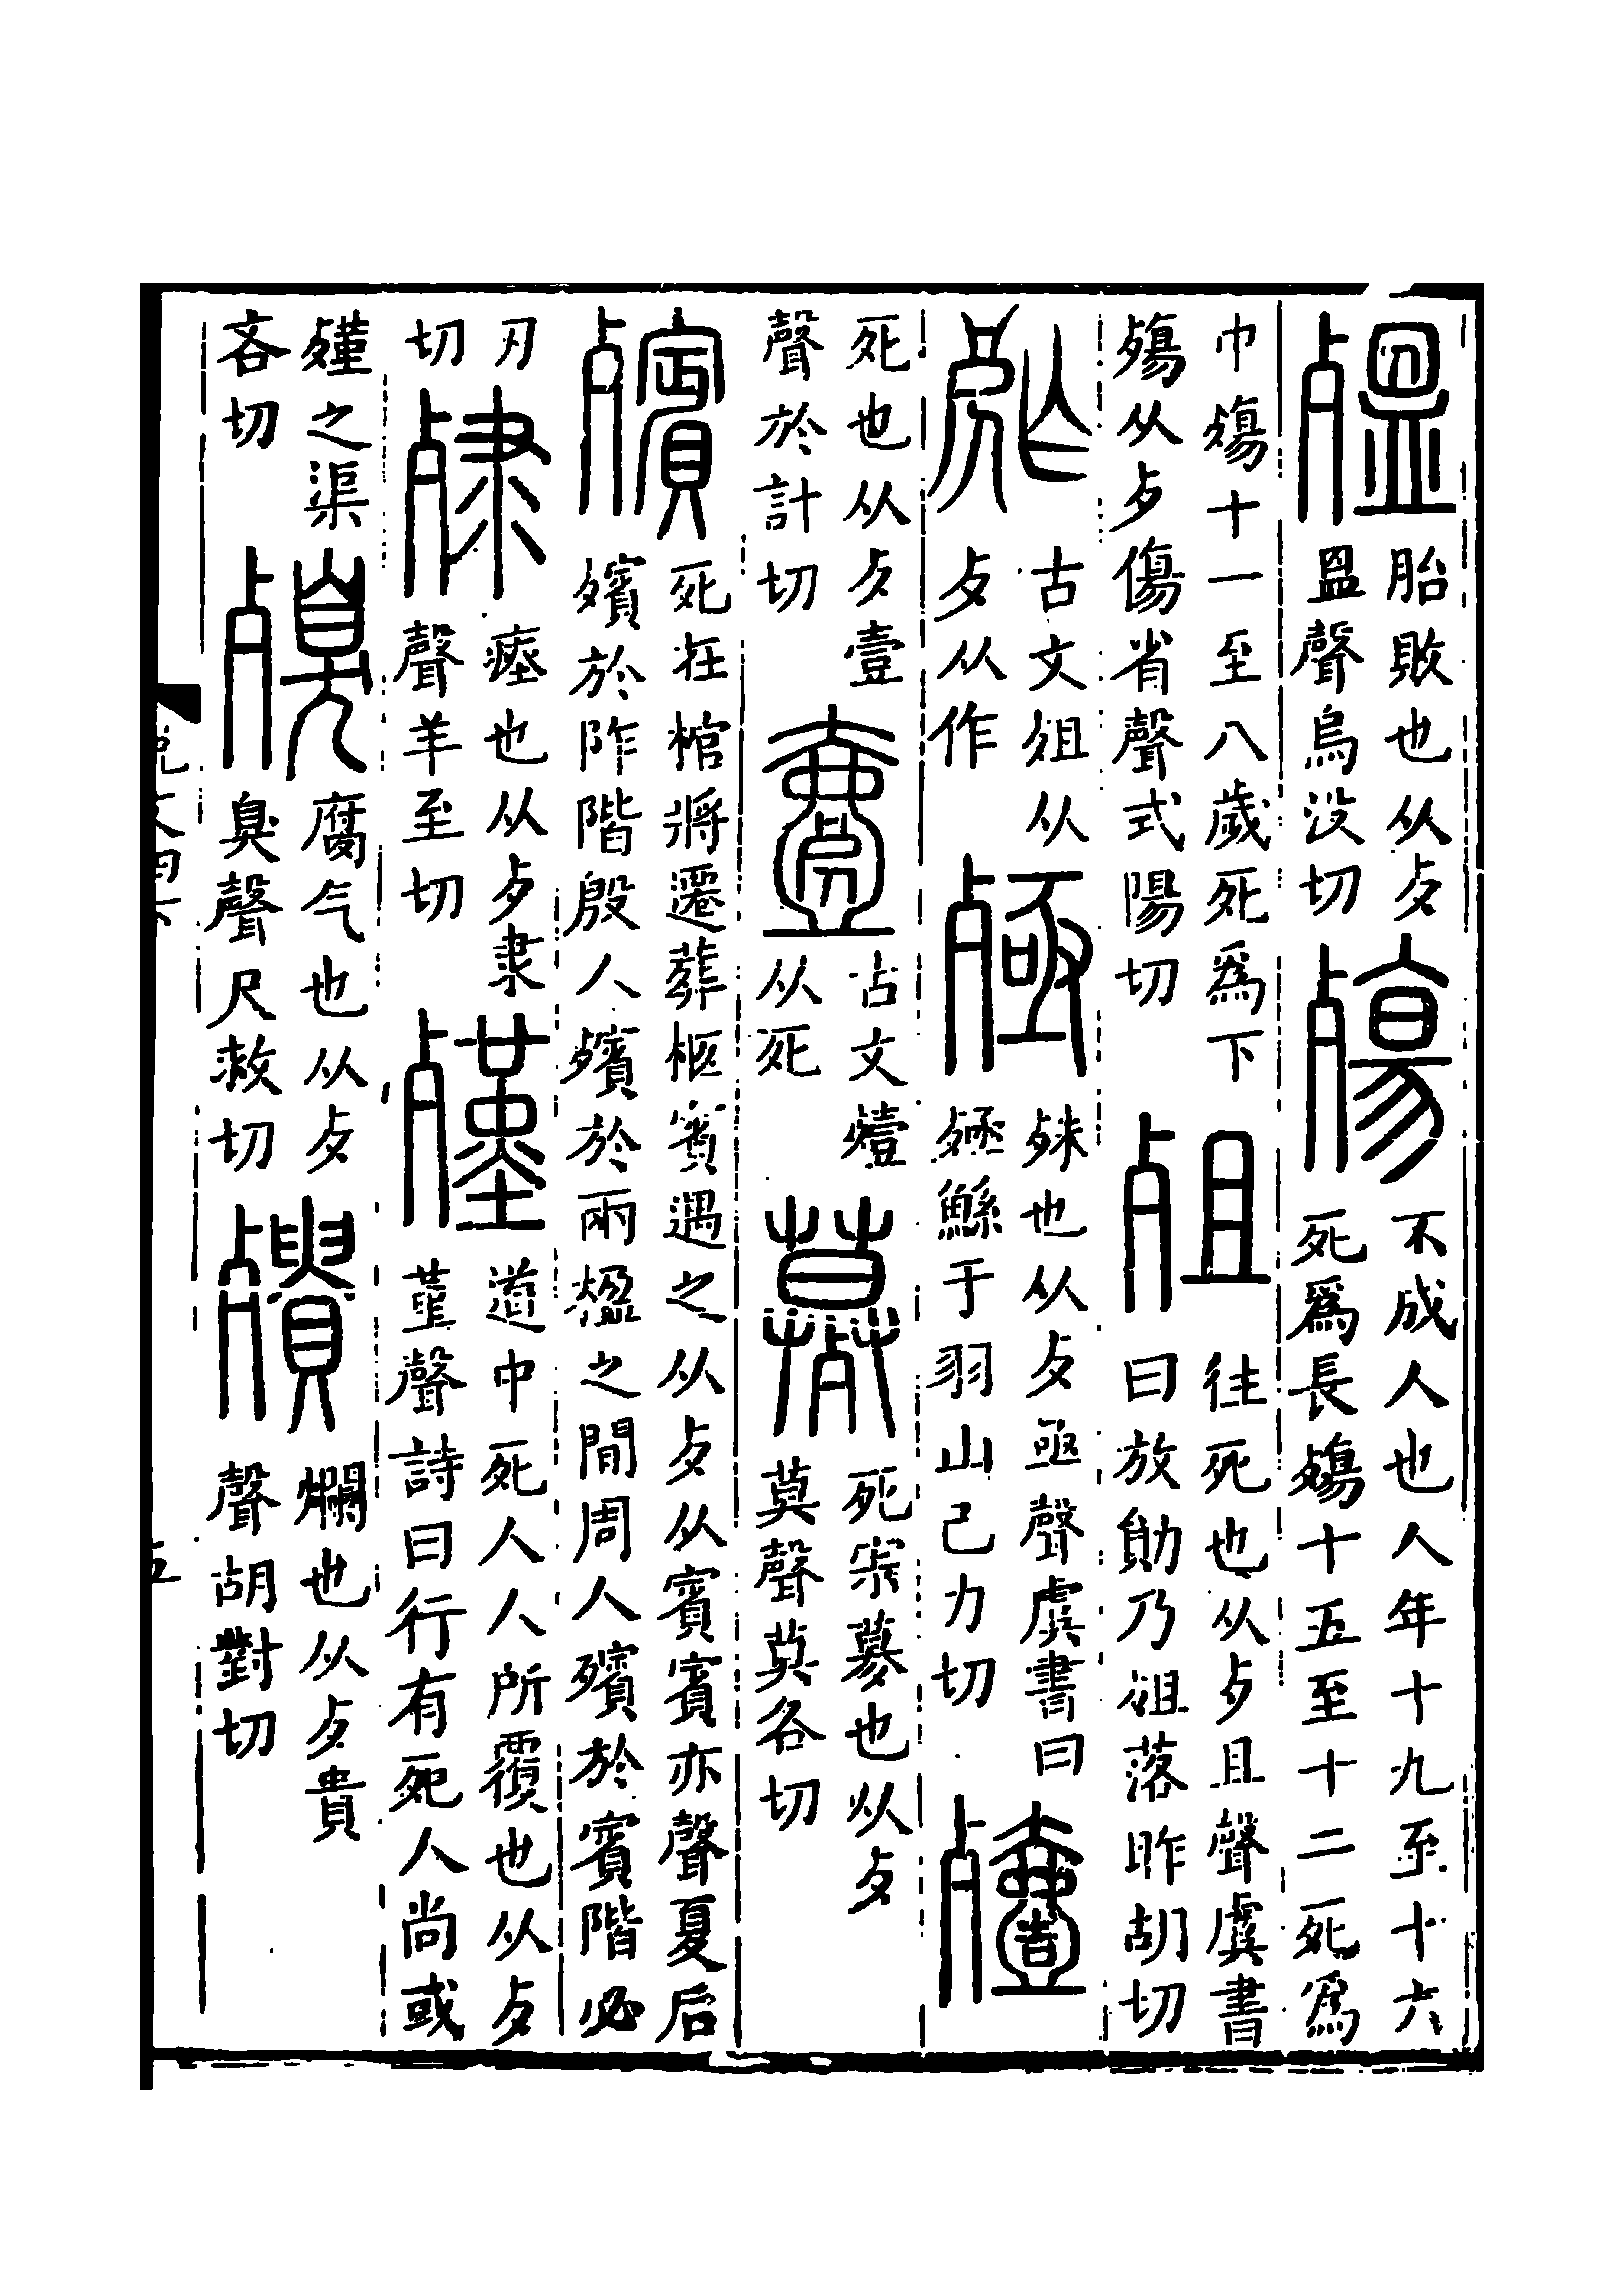 殟 胎敗也从歺𥁕聲烏没切 殤 不成人也人年十九至十六死爲長殤十五至十二死爲
巾殤十一至八歲死爲下殤从歺傷省聲式陽切 殂 往死也从歺且聲虞書曰放勛乃殂落昨胡切
古文殂从歺从作 殛 殊也从歺亟聲虞書曰殛鯀于羽山己力切 殪
死也从歺壹聲於計切 古文殪从死 死宗墓也从歺莫聲莫各切
殯 死在棺將遷葬柩賓遇之从歺从賓賓亦聲夏后殯於阼階殷人殯於兩楹之間周人殯於賓階必
刃切 瘞也从歺隶聲羊至切 殣 道中死人人所覆也从歺堇聲詩曰行有死人尚或
殣之渠吝切 殠 腐气也从歺臭聲尺救切 殨 爛也从歺貴聲胡對切
說文四下
五